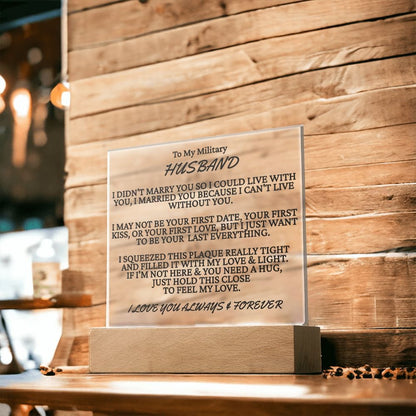 To My Military
HUSBAND
I DIDN'T MARRY YOU SO I COULD LIVE WITH
YOU, I MARRIED YOU BECAUSE I CAN'T LIVE
WITHOUT YOU.
I MAY NOT BE YOUR FIRST DATE, YOUR FIRST
KISS, OR YOUR FIRST LOVE, BUT I JUST WANT
TO BE YOUR LAST EVERYTHING.
I SQUEEZED THIS PLAQUE REALLY TIGHT
AND FILLED IT WITH MY LOVE & LIGHT.
IF I'M NOT HERE & YOU NEED A HUG,
JUST HOLD THIS CLOSE
TO FEEL MY LOVE.
I LOVE YOU ALWAYS & FOREVER